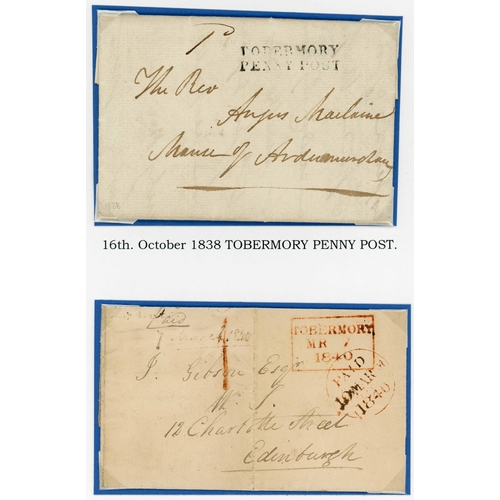 1d
TOBERMORY
PENNY POST
The Rev
Angus Maclaine
Manse of Ardnamurchan
16th. October 1838 TOBERMORY PENNY POST.
Paid
7 March 1840
1
TOBERMORY
MR 7
1840
PAID
10 MARCH
1840
J. Gibson Esqr
W. S.
12 Charlotte Street
Edinburgh